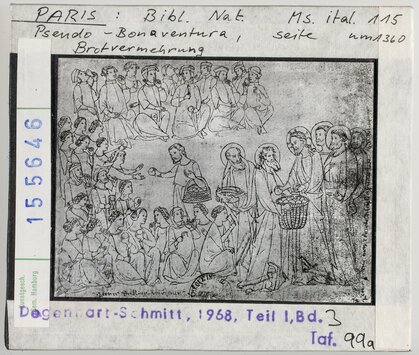 PARIS : Bibl. Nat. Ms. ital. 115
Pseudo-Bonaventura, seite um 1360
Brotvermehrung
155646
Kunstgesch.
Sem. Hamburg
Degenhart-Schmitt, 1968, Teil I, Bd. 3
Taf. 99a